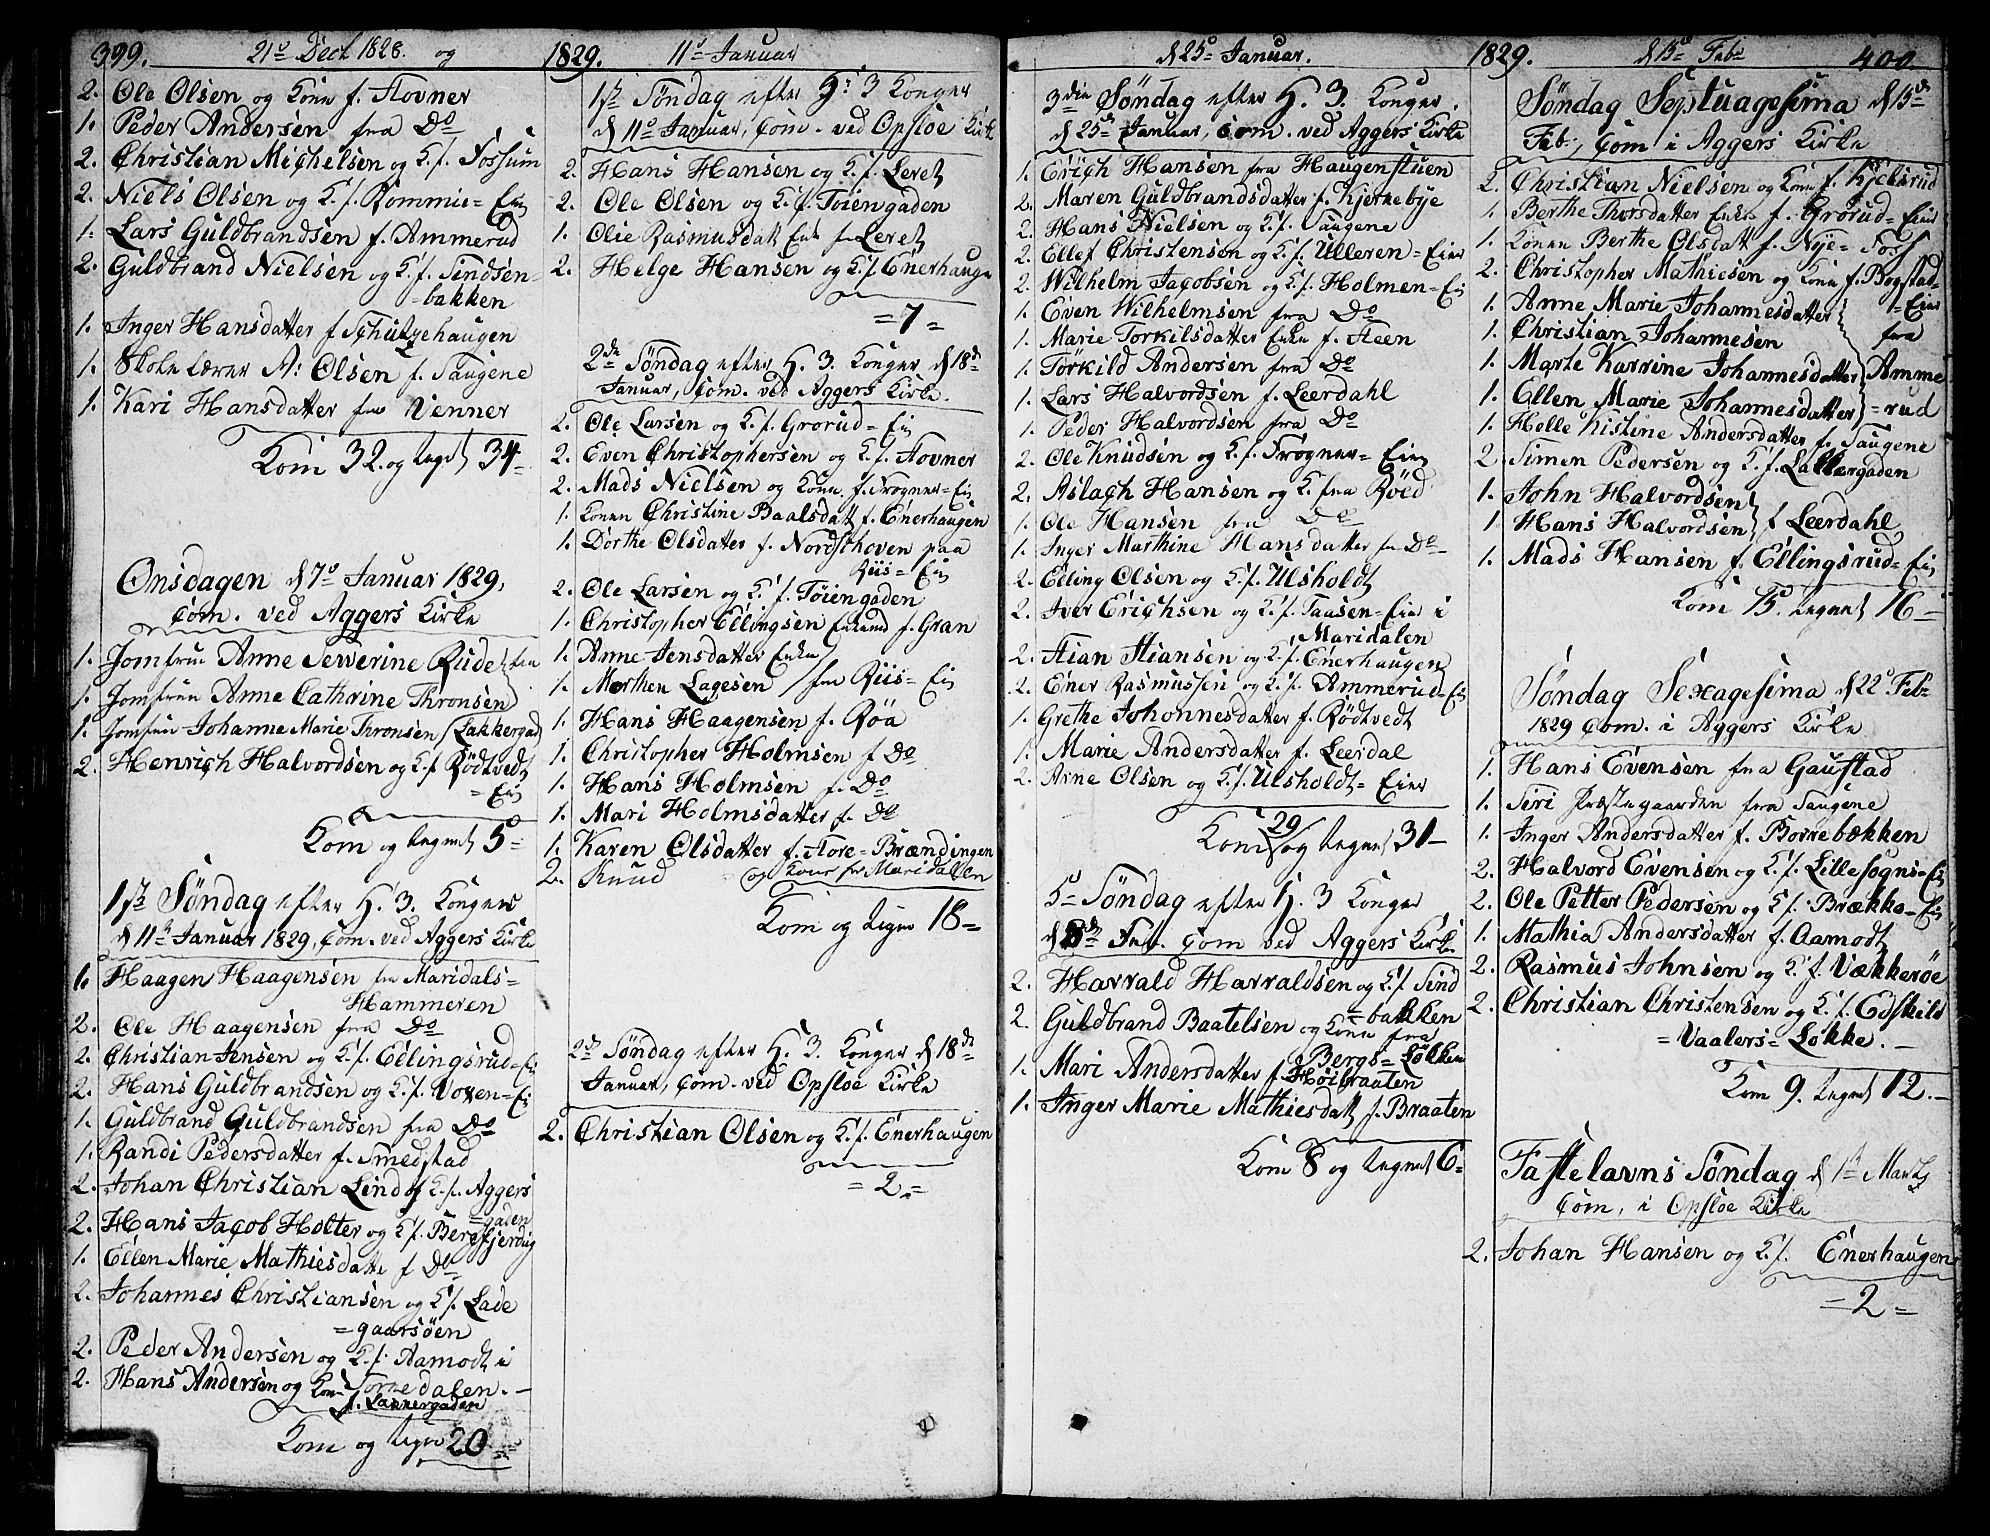 399. 21º Decb 1828. og
2. Ole Olsen og Kone f. Stovner
1. Peder Andersen fra Dº
2. Christian Michelsen og K. f. Fossum
2. Niels Olsen og K. f. Rommie= Eie
1. Lars Guldbrandsen f. Ammerud
2. Guldbrand Nielsen og K. f. Sindsen-
=bakken
1. Inger Hansdatter f Schützehaugen
1. Skolelærer A: Olsen f. Saugene
1. Kari Hansdatter fra Venner
Kom 32. og tegnet 34-
Onsdagen d 7º Januar 1829,
Com. ved Aggers Kirke
1. Jomfrue Anne Sewerine Rude fra
1. Jomfrue Anne Cathrine Thronsen
1. Jomfrue Johanne Marie Thronsen Lakkergad
2. Henrich Halvordsen og K. f Rödtvedt
= Eie
Kom og tegnet 5=
1ste Söndag efter H. 3. Konger
d 11te Januar 1829, Com. ved Aggers Kirke
1. Haagen Haagensen fra Maridals=
Hammeren
2. Ole Haagensen fra Dº
2. Christian Jensen og K. f. Ellingsrud=Eie
2. Hans Guldbrandsen og K. f. Voxen=Ei
1. Guldbrand Guldbrandsen fra Dº
1. Randi Pedersdatter f. Smedstad
2. Johan Christian Lind og K. f. Aggers
=gaden
2. Hans Jacob Holter og K f. Bergfjerdig
1. Ellen Marie Mathiesdatte f Dº
2. Johannes Christiansen og K f. Lade
=gaarsöen
2. Peder Andersen og K. f. Aamodt i
2. Hans Andersen og Kone Sornedalen.-
f. Lakkergaden
Kom og tegn 20
1829. 11º Januar
1ste Söndag efter H: 3 Konger
d 11º Januar, Com. ved Opsloe Kirke
2. Hans Hansen og K. f. Leret
2. Ole Olsen og K. f Töiengaden
1. Olie Rasmusdatt Enk fra Leret
2. Helge Hansen og K. f. Enerhauge
=7=
2de Söndag efter H. 3. Konger d 18de
Januar, Com. ved Aggers Kirke.
2. Ole Larsen og K. f. Grorud= Ei
2. Even Christophersen og K. f. Stovner
2. Mads Nielsen og Kone f. Frogner=Ei
1. Konen Christine Baalsdatt f. Enerhaugen
1. Dorthe Olsdatter f. Nordschoven paa
Riis= Ei
2. Ole Larsen og K. f. Töiengaden
1. Christopher Ellingsen Enkemd f. Gran
1. Anne Jensdatter Enke
1. Morthen Lagesen fra Riis= Ei
1. Hans Haagensen f. Röa
1. Christopher Holmsen f Dº
1. Hans Holmsen f. Dº
1. Mari Holmsdatter f. Dº
1. Karen Olsdatter f. Store= Brændingen
2. Knud og Kone fr Maridalen
Kom og tegn 18=
2de Söndag efter H. 3. Konger d 18de
Januar, Com. ved Opsloe Kirke
2. Christian Olsen og K. f. Enerhaugen
=2.=
d 25º Januar.
3die Söndag efter H. 3. Konger.
d 25de Januar, Com. ved Aggers Kirke
1. Erich Hansen fra Haugenstuen
2. Maren Guldbrandsdatter f. Kjerkebye
2. Hans Nielsen og K. f. Saugene
2. Ellef Christensen og K. f. Ulleren= Eier
2. Wilhelm Jacobsen og K. f. Holmen= Ei
1. Even Wilhelmsen fra Dº
1. Marie Torkilsdatter Enke f. Steen
1. Törkild Andersen fra Dº
1. Lars Halvordsen f. Leerdahl
1. Peder Halvordsen fra Dº
2. Ole Knudsen og K. f. Frogner= Eier
2. Aslach Hansen og K. fra Röed
1. Ole Hansen fra Dº
1. Inger Marthine Hansdatter fra Dº
2. Elling Olsen og K. f. Ulsholdt
2. Iver Erichsen og K. f. Faasen= Eier i
Maridalen
2. Stian Stiansen og K. f. Enerhaugen
2. Ener Rasmussen og K. f. Ammerud=Ei
1. Grethe Johannesdatter f. Rödtvedt
1. Marie Andersdatter f. Leerdal
2. Arne Olsen og K. f. Ulsholdt= Eier
Kom 29 og tegnet 31-
5te Söndag efter H. 3 Konger
d 8de Feb. Com ved Aggers Kirke
2. Harrald Harraldsen og K. f. Sind
=bakken
2. Guldbrand Baatelsen og Kone fra
Bergs= Lökken
1. Mari Andersdatter f. Höibraaten
1. Inger Marie Mathiesdatt f. Braaten
Kom 8 og tegnet 6=
1829. d 15º Feb. 400.
Söndag Septuagesima d 15de
Feb., Com i Aggers Kirke
2. Christian Nielsen og Kone f. Kjelsrud
1. Berthe Thorsdatter Enke f. Grorud= Eier
1. Konen Berthe Olsdatt f. Nye= Fosf
2. Christopher Mathiesen og Kone f. Bogstad-
=Eier
1. Anne Marie Johannesdatter
1. Christian Johannesen fra
1. Marte Karrine Johannesdatter Amme
1. Ellen Marie Johannesdatter =rud
1. Helle Kistine Andersdatter f. Saugene
2 Simen Pedersen og K. f. Lakkergaden
1. John Halvordsen
1 Hans Halvordsen f Leerdahl
1. Mads Hansen f. Ellingsrud= Ei
Kom 15. tegnet 16-
Söndag Sexagesima d 22º Feb
1829 Com. i Aggers Kirke
1. Hans Evensen fra Gaustad
1. Siri Præstegaarden fra Saugene
1. Inger Andersdatter f. Borrebækken
2. Halvord Evensen og K. f. Lille Sogns=Ei
2. Ole Petter Pedersen og K f. Brække=Ei
1. Mathia Andersdatter f. Aamodt
2. Rasmus Johnsen og K. f. Vækkeröe
2. Christian Christensen og K. f. Edskild
=Vaalers= Lökke.-
Kom 9. tegnet 12.-
Fastelavns Söndag d 1te Marts
Com, i Opsloe Kirke
2. Johan Hansen og K. f. Enerhaugen
=2=